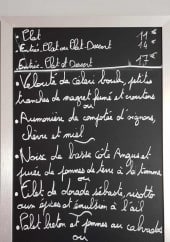 • Plat 11 €
Entrée. Plat ou Plat. Dessert 14 €
Entrée. Plat et Dessert 17 €
• Velouté de céleri boule, petites
tranches de magret fumé et croutons
ou
• Aumonière de compotée d'oignons,
chèvre et miel
• Noix de basse côte Angus et
purée de pommes de terre à la tomme
ou
• Filet de dorade sébaste, risotto
aux épices et émulsion à l'ail
• Palet breton et pommes au calvados
ou